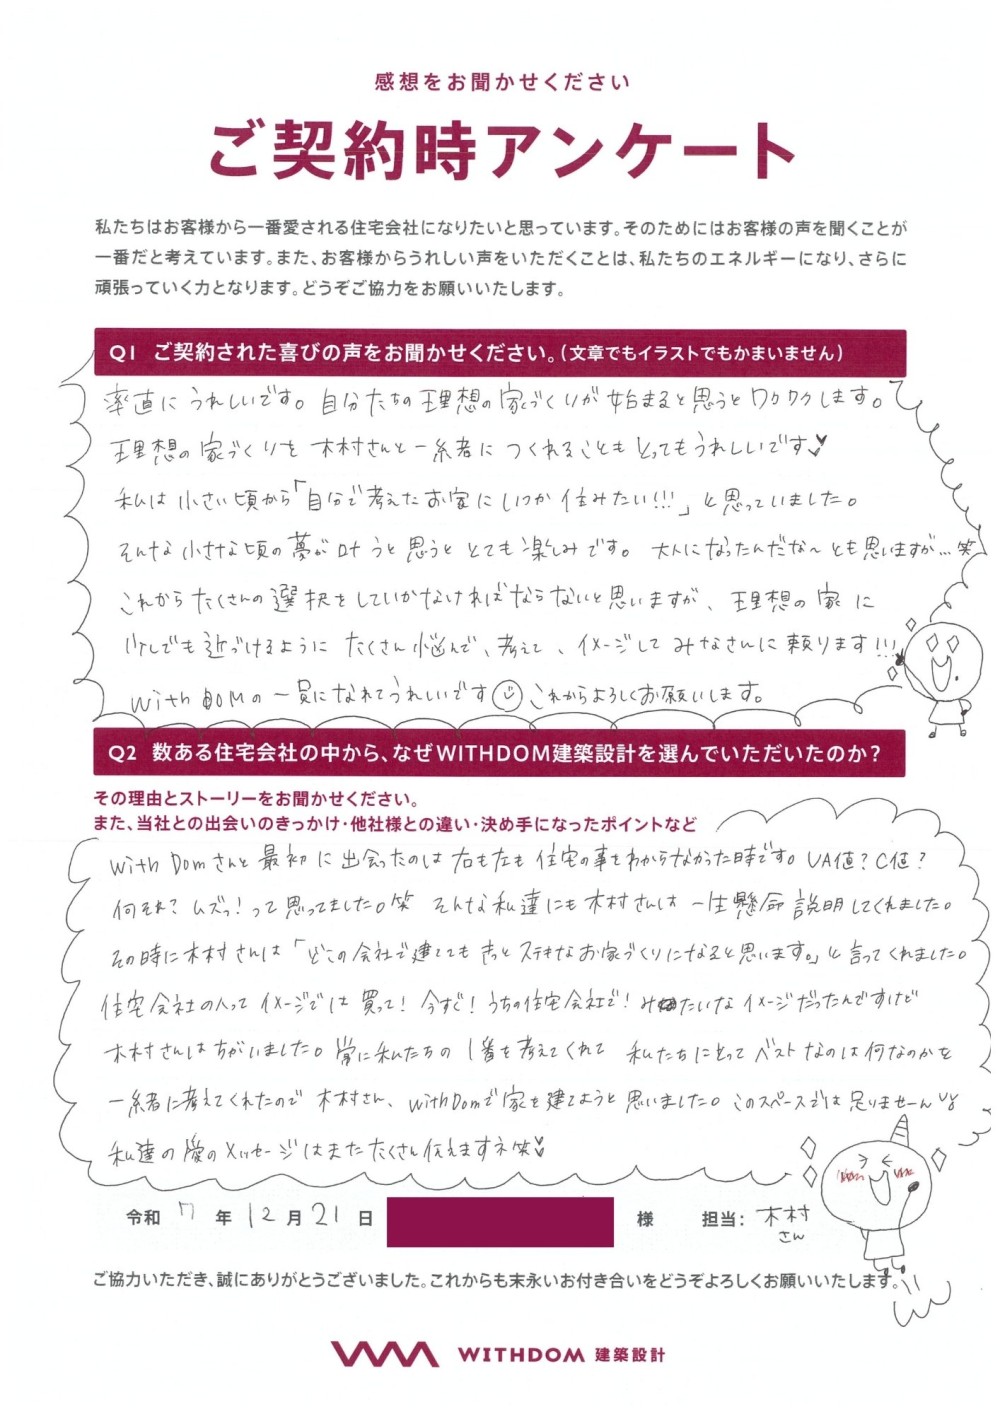 感想をお聞かせください
ご契約時アンケート
私たちはお客様から一番愛される住宅会社になりたいと思っています。そのためにはお客様の声を聞くことが
一番だと考えています。また、お客様からうれしい声をいただくことは、私たちのエネルギーになり、さらに
頑張っていく力となります。どうぞご協力をお願いいたします。
Q1 ご契約された喜びの声をお聞かせください。（文章でもイラストでもかまいません）
率直に うれしいです。自分たちの理想の家づくりが始まると思うとワクワクします。
理想の家づくりを 木村さんと一緒に つくれることも とってもうれしいです♥
私は小さい頃から「自分で考えたお家にいつか住みたい!!!」と思っていました。
そんな小さな頃の夢が叶うと思うと とても楽しみです。 大人になったんだな〜とも思いますが...笑
これからたくさんの選択をしていかなければならないと思いますが、理想の家に
少しでも近づけるように たくさん悩んで、考えて、イメージして みなさんに頼ります!!!
with DOMの一員になれてうれしいです☺ これからよろしくお願いします。
Q2 数ある住宅会社の中から、なぜWITHDOM建築設計を選んでいただいたのか？
その理由とストーリーをお聞かせください。
また、当社との出会いのきっかけ・他社様との違い・決め手になったポイントなど
with Domさんと最初に出会ったのは右も左も住宅の事をわからなかった時です。UA値？C値？
何それ？ムズっ！って思ってました。笑 そんな私達にも木村さんは一生懸命説明してくれました。
その時に木村さんは「どこの会社で建ててもきっとステキなお家づくりになると思います。」と言ってくれました。
住宅会社の人って イメージでは 買って！今すぐ！うちの住宅会社で！みたいなイメージだったんですけど
木村さんはちがいました。常に私たちの1番を考えてくれて 私たちにとってベストなのは何なのかを
一緒に考えてくれたので 木村さん、withDomで家を建てようと思いました。このスペースでは足りません
私達の愛のメッセージはまたたくさん伝えますネ笑♥
令和 7 年 12 月 21 日 様 担当： 木村
さん
ご協力いただき、誠にありがとうございました。これからも末永いお付き合いをどうぞよろしくお願いいたします。
WITHDOM 建築設計